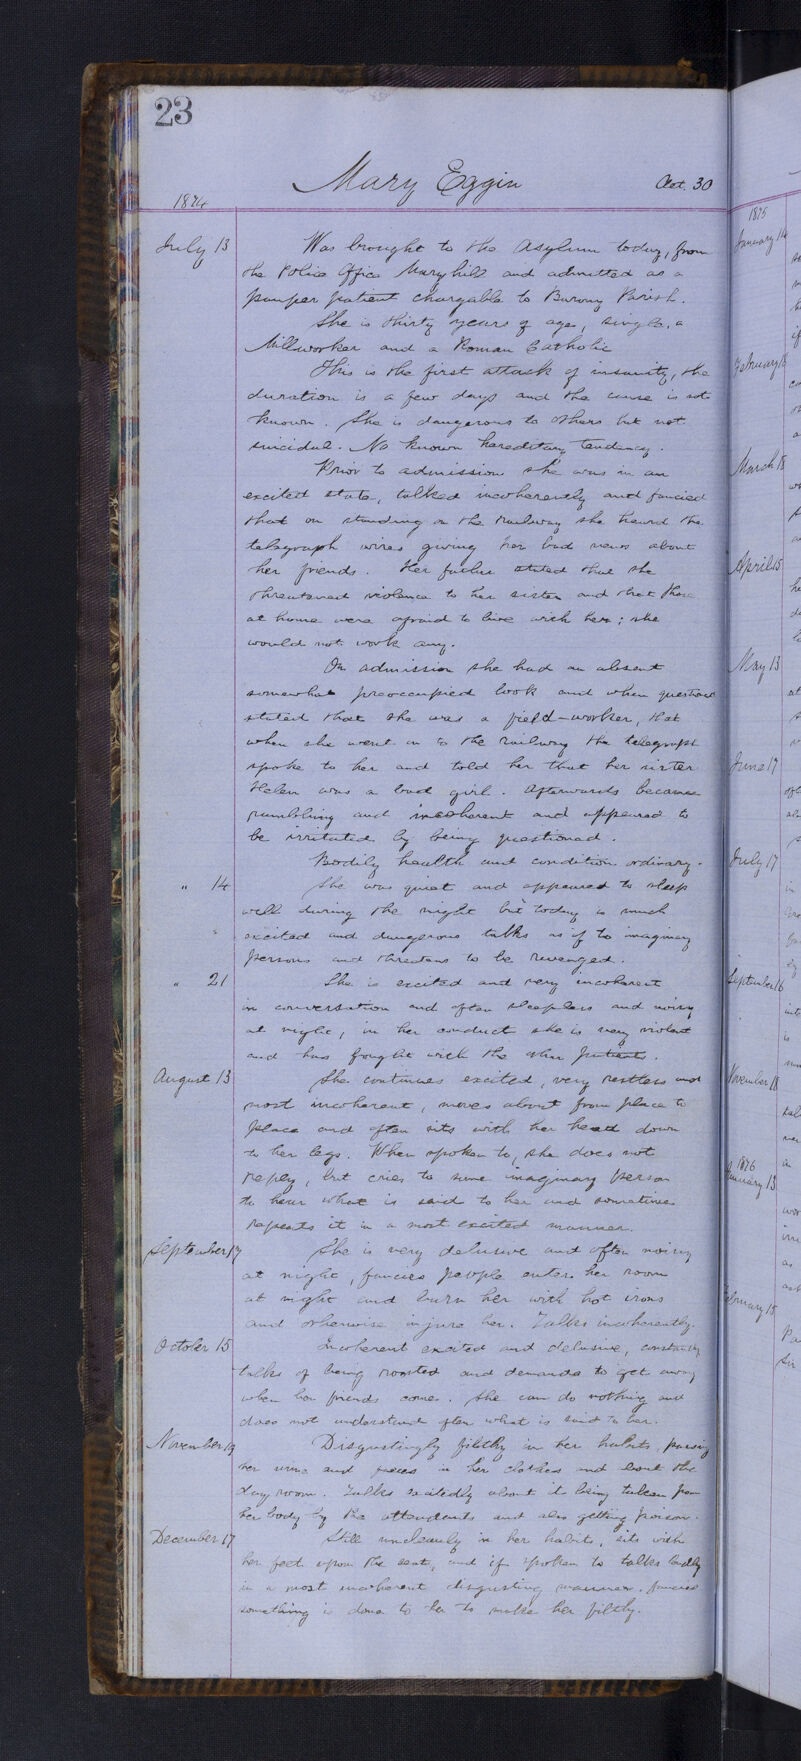 23
Mary Eggin Aet. 30
1874
July 13 Was brought to the Asylum today, from
the Police Office Maryhill and admitted as a
pauper patient chargable to Parish.
She is thirty years of age, single, a
Millworker and a Roman Catholic
This is the first attack of insanity, the
duration is a few days and the cause is not
known. She is dangerous to others but not
suicidal. No known hereditary tendency.
Prior to admission she was in an
excited state, talked incoherently and fancied
that on standing on the railway she heard the
telegraph wires giving her bad news about
her friends. Her father stated that she
threatened violence to her sister and that those
at home were afraid to live with her; she
would not work any.
On admission she had an absent
somewhat preoccupied look and when questioned
stated that she was a field-worker, that
when she went on to the railway the telegraph
spoke to her and told her that her sister
Helen was a bad girl. Afterwards became
rambling and incoherent and appeared to
be irritated by being questioned.
Bodily health and condition ordinary.
" 14 She was quiet and appeared to sleep
well during the night but today is much
excited and dangerous talks as if to imaginary
persons and threatens to be revenged.
" 21 She is excited and very incoherent
in conversation and often sleepless and noisy
at night, in her conduct she is very violent
and has fought with the other patients.
August 13 She continues excited, very restless and
most incoherent, moves about from place to
place and often sits with her head down
to her legs. When spoken to, she does not
reply, but cries to some imaginary person
to hear what is said to her and sometimes
repeats it in a most excited manner.
September 17 She is very delusive and often noisy
at night, fancies people enter her room
at night and burn her with hot irons
and otherwise injure her. Talks incoherently.
October 15 Incoherent excited and delusive, constantly
talks of being roasted and demands to get away
when her friends come. She can do nothing and
does not understand often what is said to her.
November 19 Disgustingly filthy in her habits, passing
her urine and faeces in her clothes and about the
day room. Talks excitedly about it being taken from
her body by the attendants and also getting poison.
December 17 Still uncleanly in her habits, sits with
her feet upon the seat, and if spoken to talks loudly
in a most incoherent disgusting manner. fancies
something is done to her to make her filthy.
1875
January 14
February 18
March 18
April 15
May 13
June 17
July 17
September 16
November 18
1876
January 13
February 15